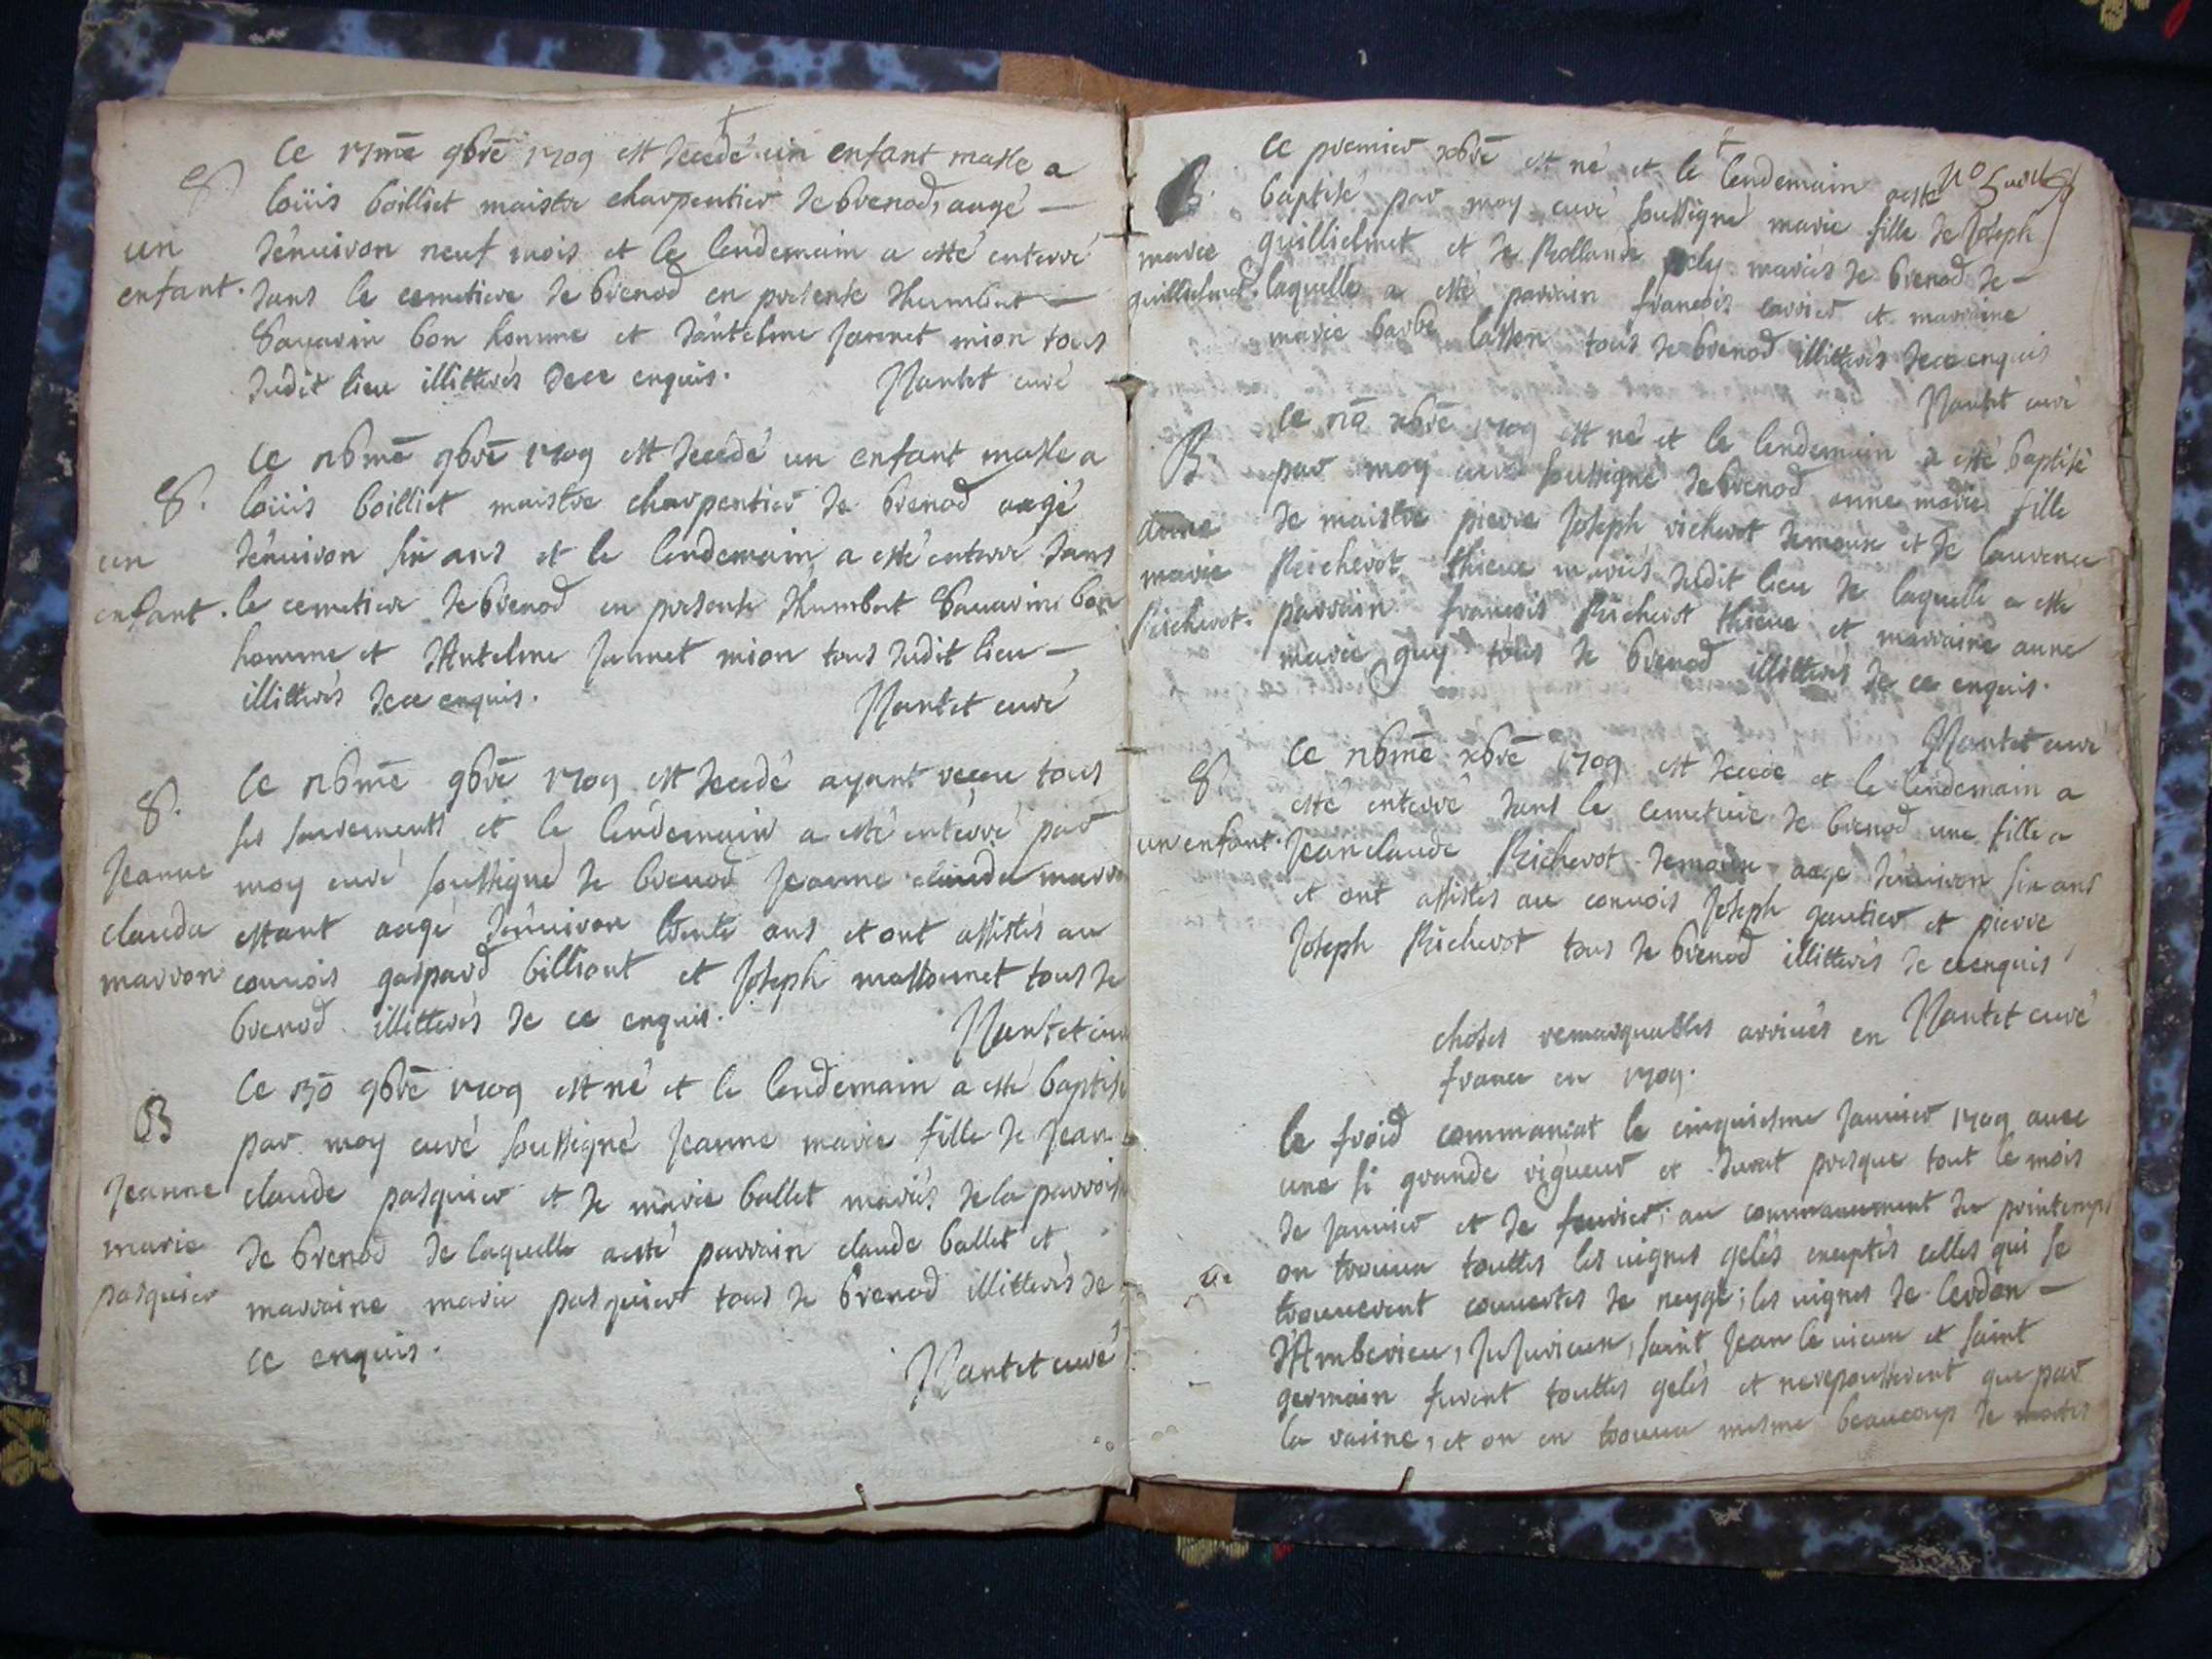 S.
un
enfant.
Ce 17me 9bre 1709 est decedé un enfant masle a
loüis boilliet maistre charpentier de brenod, aagé —
d'enuiron neuf mois et le lendemain a esté enterré
dans le cemetiere de brenod en presence d'humbert —
Sauarin bon homme et d'antelme Jannet mion tous
dudit lieu illitterés de ce enquis. Nantet curé
S.
un
enfant.
Ce me 9bre 1709 est decedé un enfant masle a
loüis boilliet maistre charpentier de brenod aagé
d'enuiron six ans et le lendemain a esté enterré dans
le cemetiere de brenod en presence d'humbert Sauarin bon
homme et d'Antelme Jannet mion tous dudit lieu —
illitterés de ce enquis. Nantet curé
S.
Jeanne
clauda
marron
Ce me 9bre 1709 est decedé ayant receu tous
ses sacrements et le lendemain a esté enterré par
moy curé soussigné de brenod Jeanne clauda marron
estant aagé d'enuiron trente ans et ont assistés au
conuois gaspard billiout et Joseph massonnet tous de
brenod illitterés de ce enquis. Nantet curé
B
Jeanne
marie
pasquier
Ce 9bre 1709 est né et le lendemain a esté baptisé
par moy curé soussigné Jeanne marie fille de Jean
claude pasquier et de marie ballet mariés de la parroisse
de brenod de laquelle a esté parrain claude ballet et
marraine marie pasquier tous de brenod illitterés de
ce enquis.
Nantet curé
B.
marie
guillielmet.
Ce premier xbre est né et le lendemain a esté
baptisé par moy curé soussigné marie fille de Joseph
guillielmet et de Rollande mariés de brenod de —
laquelle a esté parrain francois carrier et marraine
marie barbe lasson tous de brenod illitterés de ce enquis
Nantet curé
B.
anne
marie
Richerot.
Ce xbre 1709 est né et le lendemain a esté baptisé
par moy curé soussigné de brenod anne marie fille
de maistre pierre Joseph richerot demoux et de laurence
Richerot thieue mariés dudit lieu de laquelle a esté
parrain françois Richerot thieue et marraine anne
marie guy tous de brenod illitterés de ce enquis.
Nantet curé
S.
un enfant.
Ce me xbre 1709 est decedé et le lendemain a
esté enterré dans le cemetiere de brenod une fille a
Jean claude Richerot demoux aagé d'enuiron six ans
et ont assistés au conuois Joseph gautier et pierre
Joseph Richerot tous de brenod illitterés de ce enquis
Nantet curé
choses remarquables arriués en
france en 1709.
le froid commancat le cinquiesme Januier 1709 auec
une si grande rigueur et durat presque tout le mois
de januier et de feurier; au commancement du printemps
on trouua touttes les uignes gelés exceptés celles qui se
trouuerent couuertes de neyge; les uignes de Cerdon —
d'Amberieu, Jujurieux, saint Jean le uieux et saint
germain furent touttes gelés et ne repousserent que par
la racine, et on en trouua mesme beaucoup de mortes